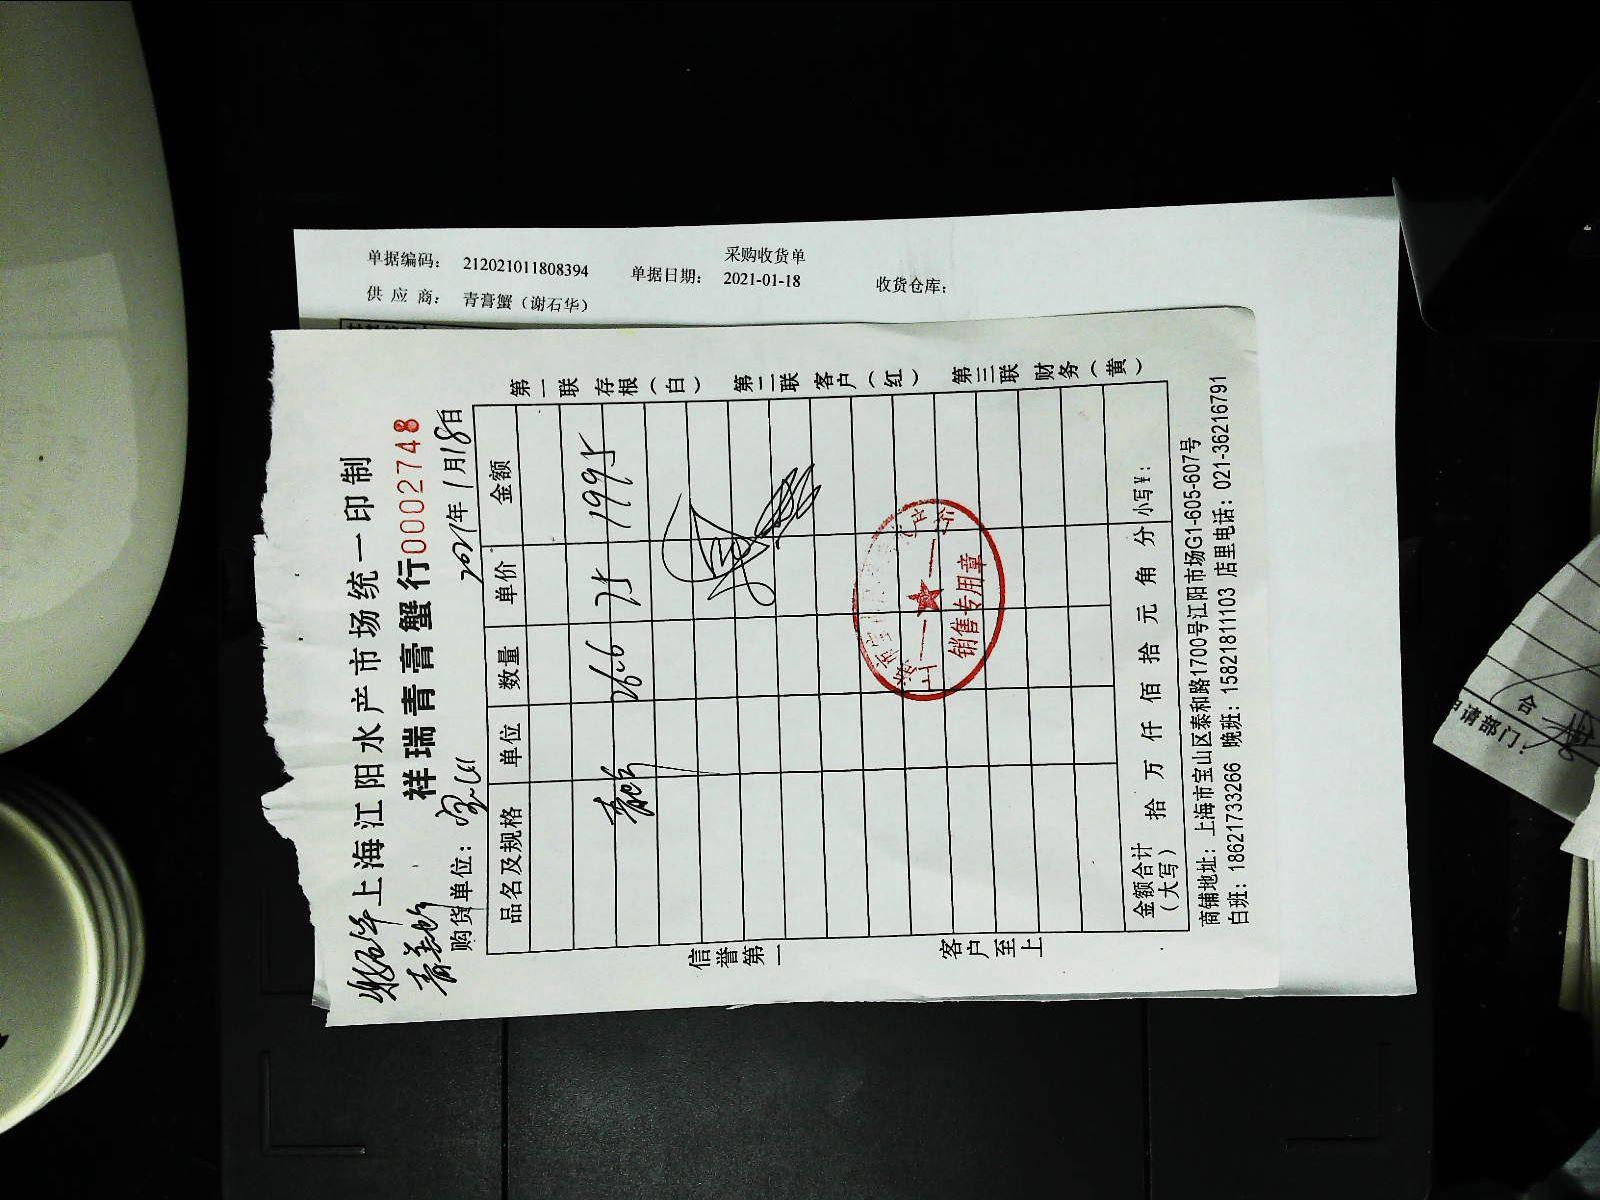 采购收货单
单据编码： 212021011808394 单据日期： 2021-01-18 收货仓库：
供 应 商： 青膏蟹（谢石华）
谢石华
上海江阳水产市场统一印制
祥瑞青膏蟹行 0002748
购货单位： 2021年1月18日
品名及规格 单位 数量 单价 金额
26.6 75 1995
金额合计（大写） 拾 万 仟 佰 拾 元 角 分 小写￥：
商铺地址：上海市宝山区泰和路1700号江阳市场G1-605-607号
白班：18621733266 晚班：15821811103 店里电话：021-36216791
第一联 存根（白） 第二联 客户（红） 第三联 财务（黄）
信誉第一 客户至上
销售专用章
申请部门：
合